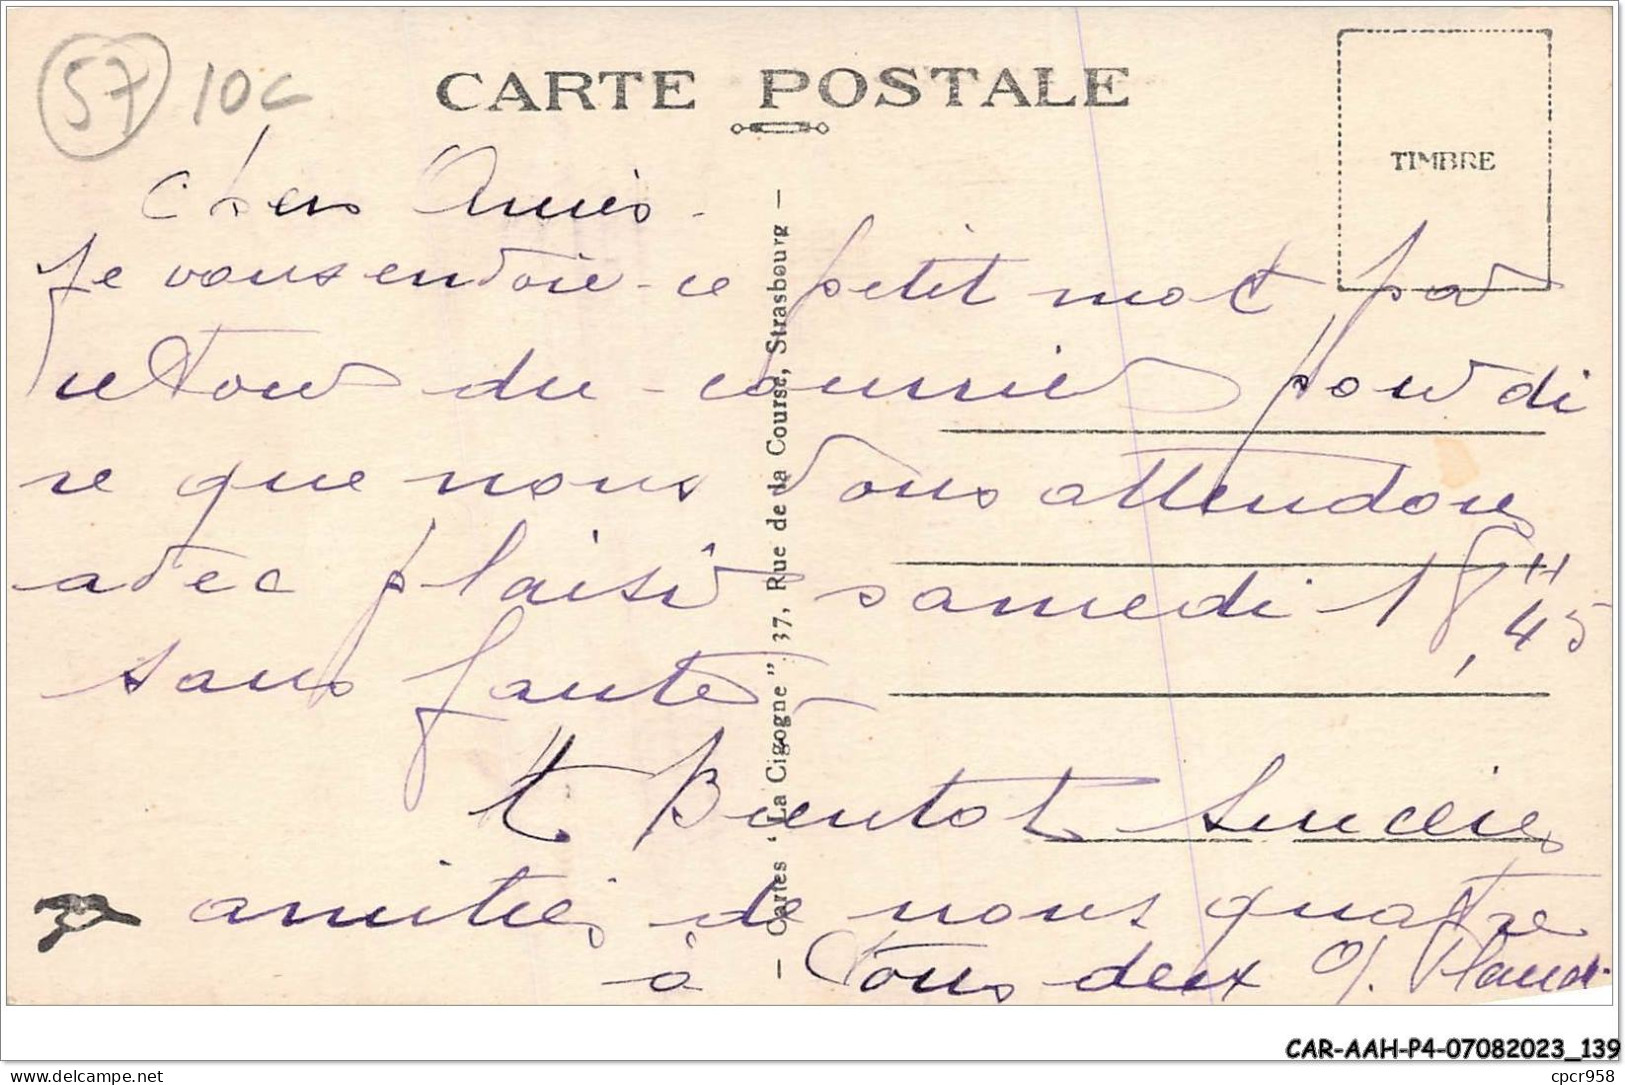 57 10c
CARTE POSTALE
TIMBRE
Chers Amis.
Je vous envoie ce petit mot par
retour du courrier pour di
re que nous vous attendons
avec plaisir samedi 18H,45
sans faute -
A Bientot Sincères
amitiés de nous quatre
à tous deux
- Cartes "La Cigogne" 37, Rue de la Course, Strasbourg -
CAR-AAH-P4-07082023_139
cpcr958